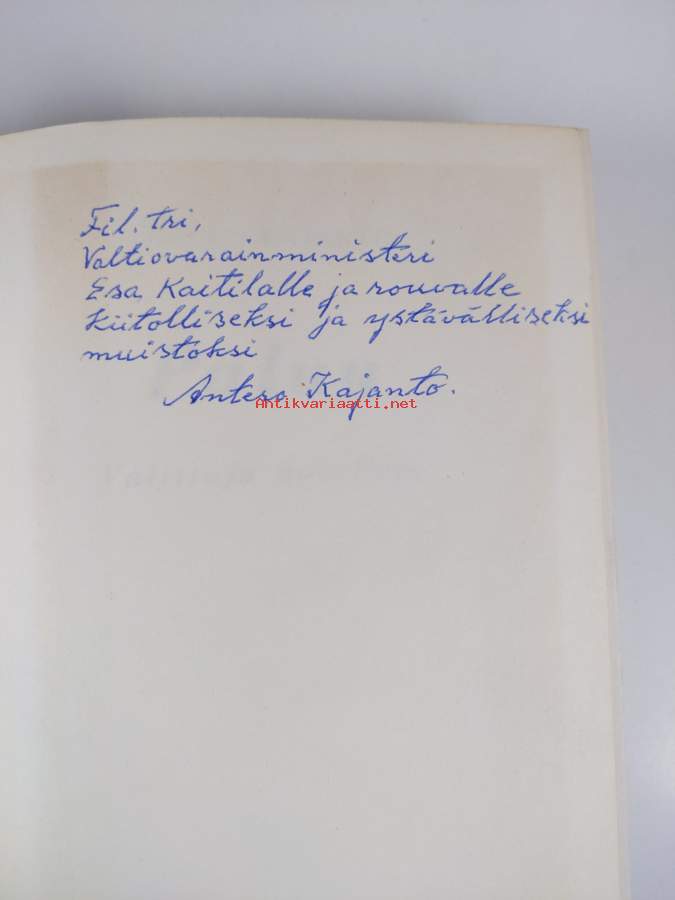 Fil. tri,
Valtiovarainministeri
Esa Kaitilalle ja rouvalle
kiitolliseksi ja ystävälliseksi
muistoksi
Antero Kajanto.
Antikvariaatti.net